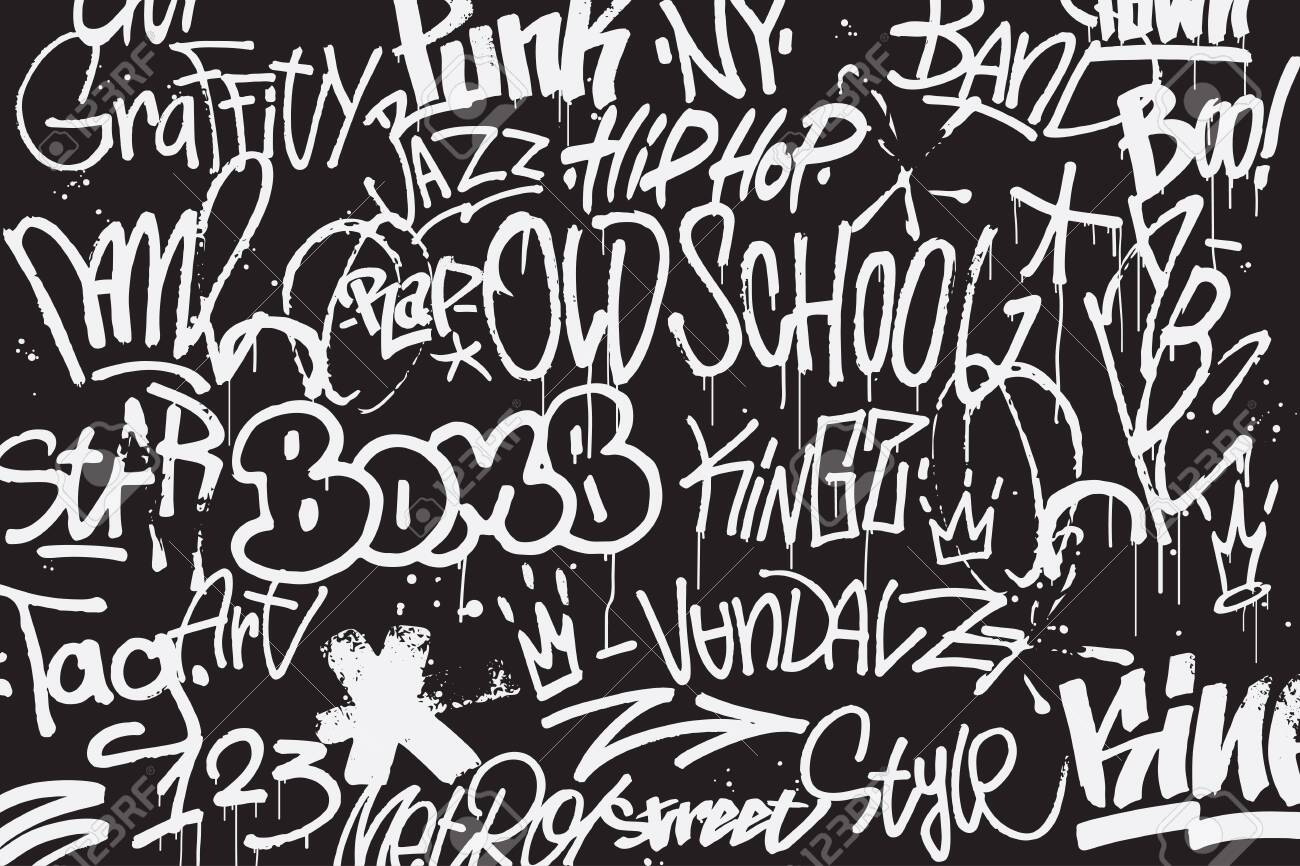 Graffity
Punk
NY
BAND
Town
Boo!
JAZZ
HiPHOP
Rap
OLD SCHOOL
STAR
BOMB
KING
Tag
Art
VANDALZ
King
123
METRO
street
Style